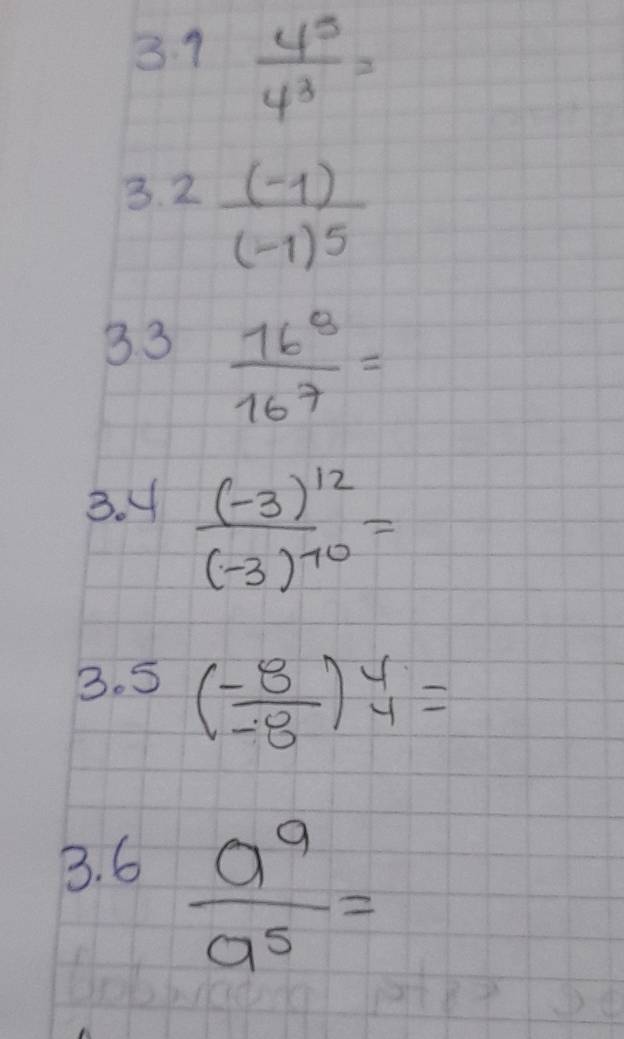 3.1 4^5/4^3 =
3.2 (-1)/(-1)^5
3.3 16^8/16^7 =
3.4 (-3)^12/(-3)^10 =
3.5 (-8/-8)^4/4 =
3.6 a^9/a^5 =